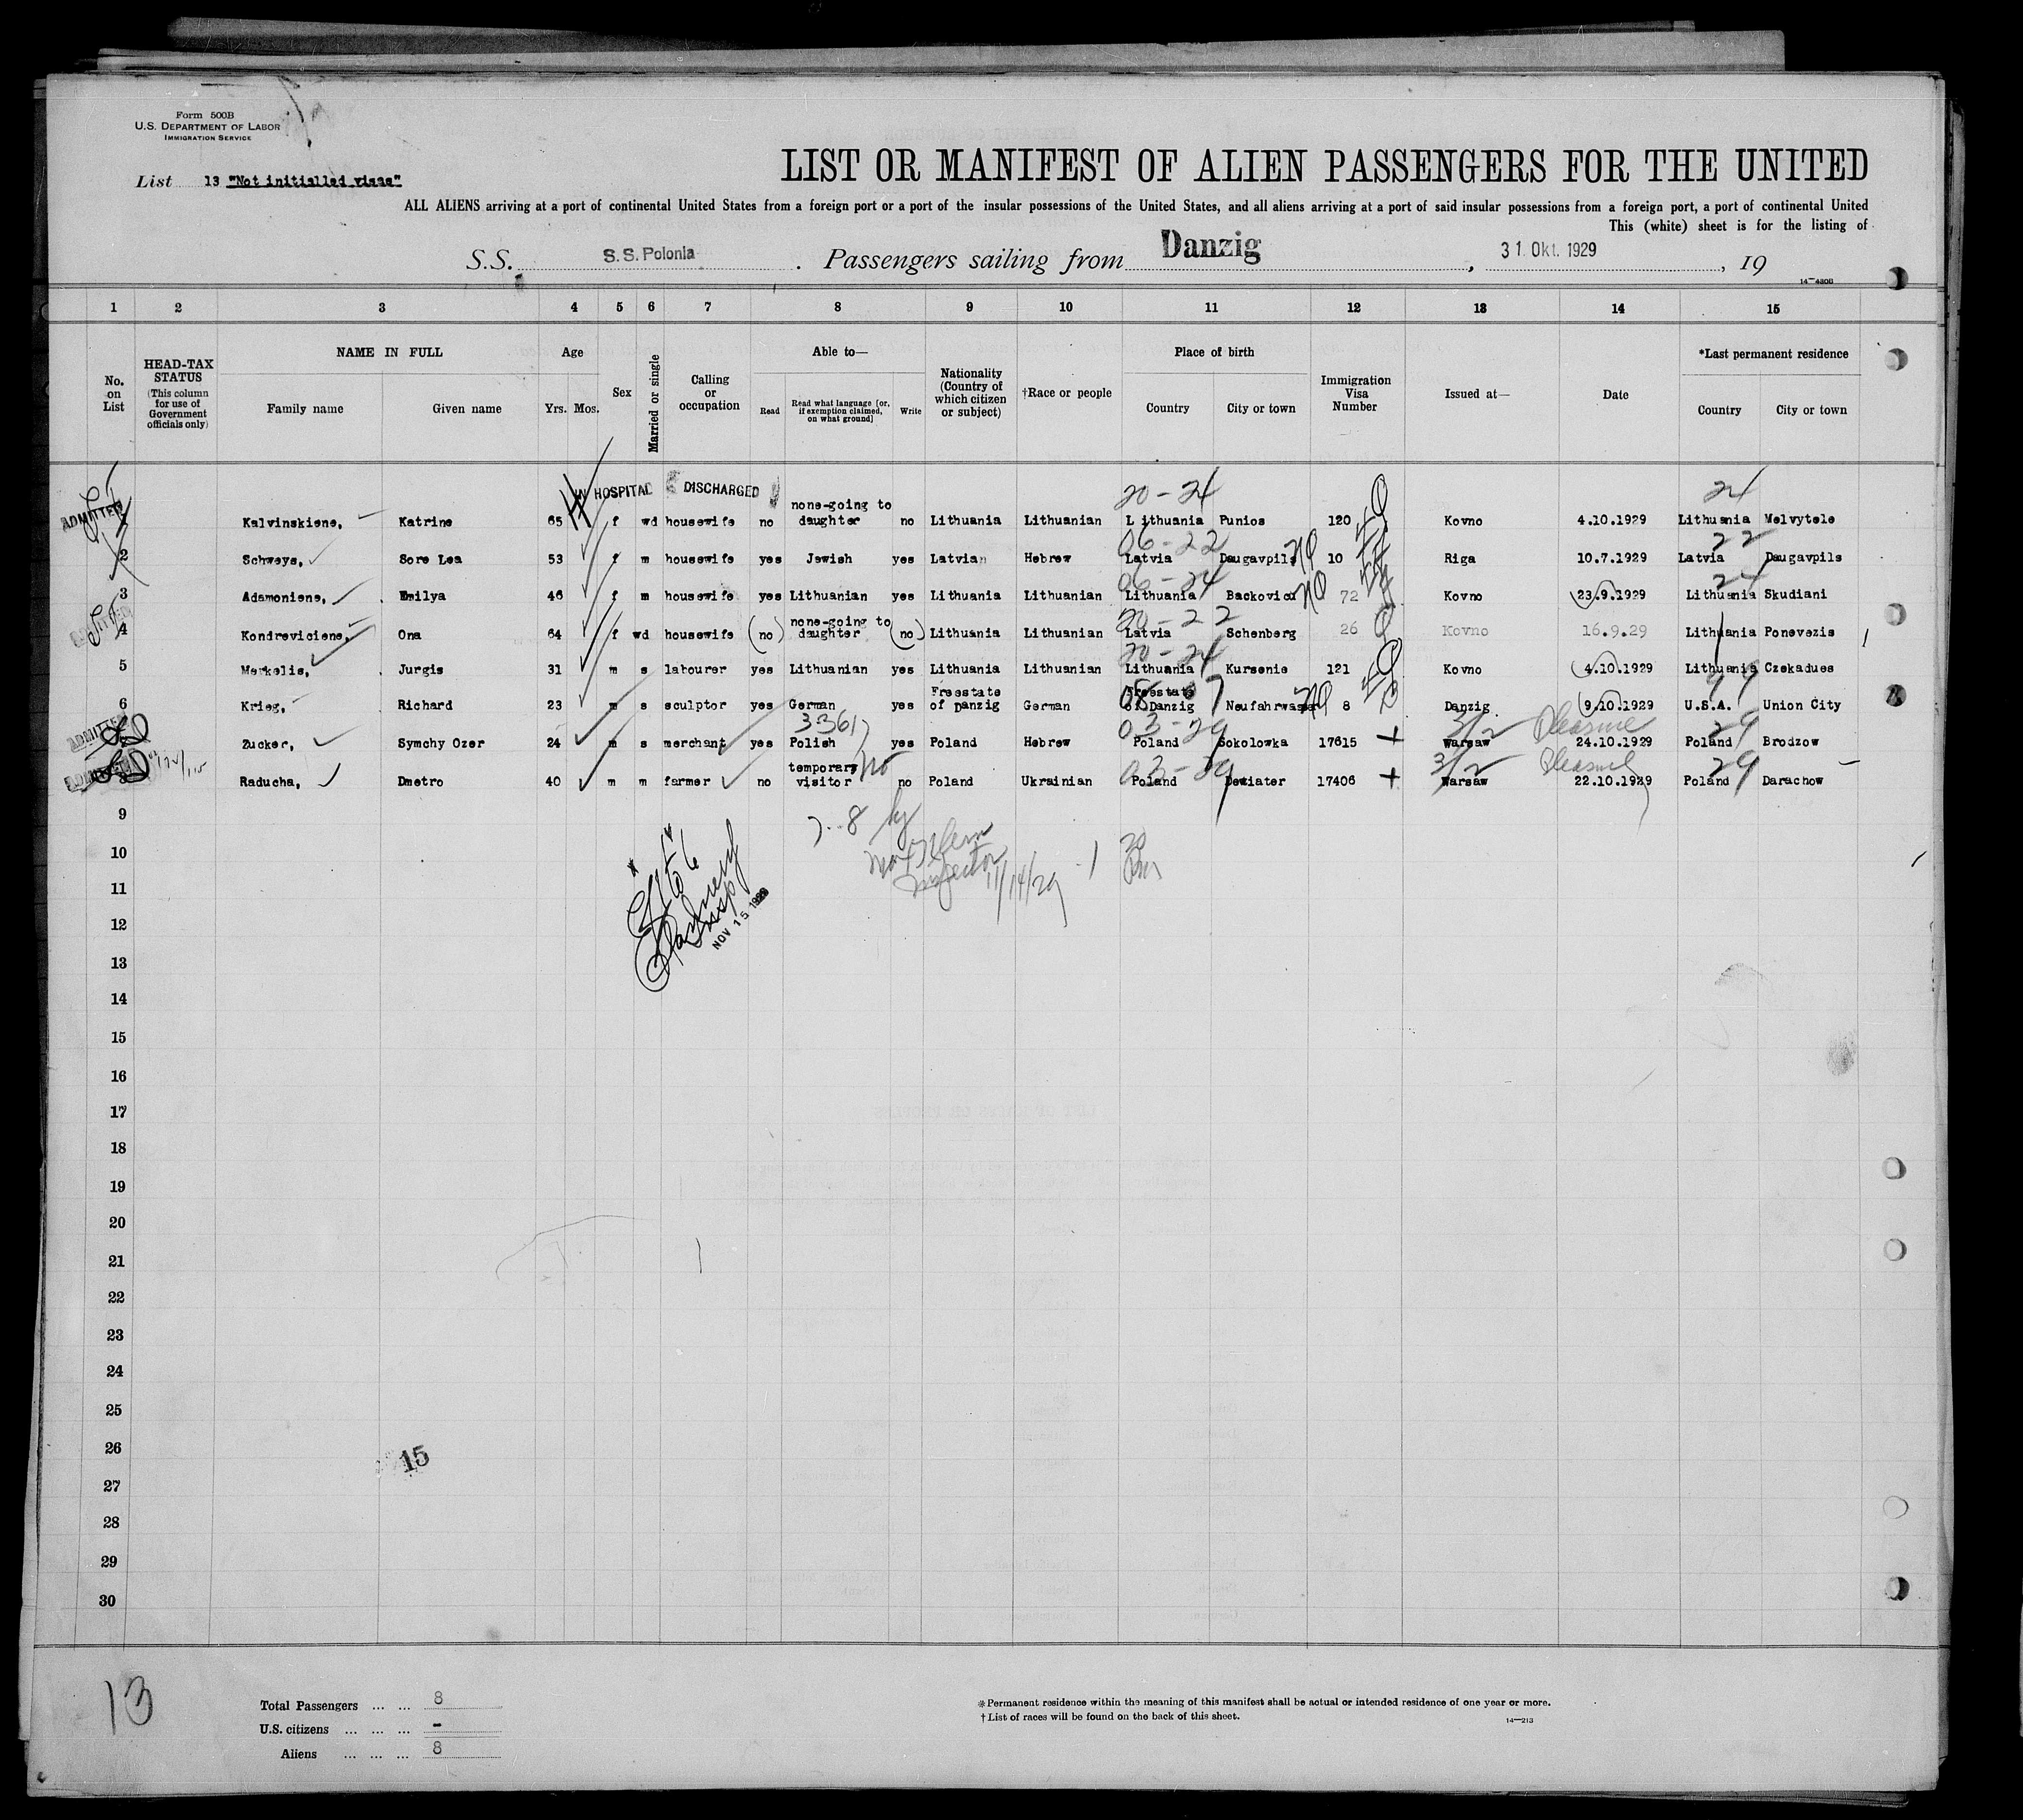 Form 500B
U.S. DEPARTMENT OF LABOR
IMMIGRATION SERVICE
List 13 "Not initialled visas"
LIST OR MANIFEST OF ALIEN PASSENGERS FOR THE UNITED
ALL ALIENS arriving at a port of continental United States from a foreign port or a port of the insular possessions of the United States, and all aliens arriving at a port of said insular possessions from a foreign port, a port of continental United
This (white) sheet is for the listing of
S.S. S.S. Polonia. Passengers sailing from Danzig, 31. Okt. 1929, 19
14—4806
1 2 3 4 5 6 7 8 9 10 11 12 13 14 15
No. on List
HEAD-TAX STATUS (This column for use of Government officials only)
NAME IN FULL Family name Given name
Age Yrs. Mos.
Sex
Married or single
Calling or occupation
Able to— Read Read what language [or, if exemption claimed, on what ground] Write
Nationality (Country of which citizen or subject)
†Race or people
Place of birth Country City or town
Immigration Visa Number
Issued at—
Date
*Last permanent residence Country City or town
IN HOSPITAL DISCHARGED 20-24 24
ADMITTED Kalvinskiene, Katrine 65 f wd housewife no none-going to daughter no Lithuania Lithuanian Lithuania Punios 120 Kovno 4.10.1929 Lithuania Melvytele
06-22 22
2 Schweys, Sore Lea 53 f m housewife yes Jewish yes Latvian Hebrew Latvia Daugavpils 10 Riga 10.7.1929 Latvia Daugavpils
06-24 24
3 Adamoniene, Emilya 46 f m housewife yes Lithuanian yes Lithuania Lithuanian Lithuania Backovici 72 Kovno 23.9.1929 Lithuania Skudiani
20-22
ADMITTED 4 Kondreviciene, Ona 64 f wd housewife (no) none-going to daughter (no) Lithuania Lithuanian Latvia Schenberg 26 Kovno 16.9.29 Lithuania Ponevezis
20-24
5 Merkelis, Jurgis 31 m s labourer yes Lithuanian yes Lithuania Lithuanian Lithuania Kursenie 121 Kovno 4.10.1929 Lithuania Czekadues
6 Krieg, Richard 23 m s sculptor yes German yes Freestate of Danzig German Freestate of Danzig Neufahrwasser 8 Danzig 9.10.1929 U.S.A. Union City
3361 03-29 3/2 Pleasure 29
ADMITTED Zucker, Symchy Ozer 24 m s merchant yes Polish yes Poland Hebrew Poland Sokolowka 17615 + Warsaw 24.10.1929 Poland Brodzow
no 03-29 3/2 Pleasure 29
ADMITTED 8 Raducha, Dmetro 40 m m farmer no temporary visitor no Poland Ukrainian Poland Dewiater 17406 + Warsaw 22.10.1929 Poland Darachow
9
7-8 by
10
Inspector 11/14/29
11
1 to 6
Insp
NOV 15 1929
12
13
14
15
16
17
18
19
20
21
22
23
24
25
26
15
27
28
29
30
13
Total Passengers ... ... 8
U.S. citizens ... ... ... -
Aliens ... ... ... 8
*Permanent residence within the meaning of this manifest shall be actual or intended residence of one year or more.
†List of races will be found on the back of this sheet.
14—213